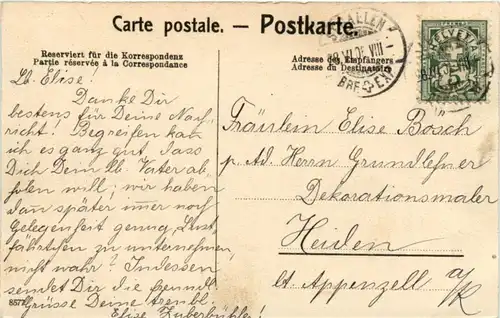 Carte postale. — Postkarte.
Reserviert für die Korrespondenz
Partie réservée à la Correspondance
Adresse des Empfängers
Adresse du Destinataire
HELVETIA
BRF. EXP.
Lb. Elise!
Danke Dir
bestens für Deine Nach-
richt. Begreifen kann
ich es ganz gut, dass
Dich Dein lb. Vater ab-
holen will; wir haben
dan später immer noch
Gelegenheit genug, Lust-
fährtchen zu unternehmen,
nicht wahr? Indessen
sendet Dir die freundl.
Grüsse Deine tr. erg. bl.
Elise Zuberbühler!
Fräulein Elise Bosch
p. Ad. Herrn Grundlehner
Dekorationsmaler
Heiden
kt. Appenzell a/R
8577